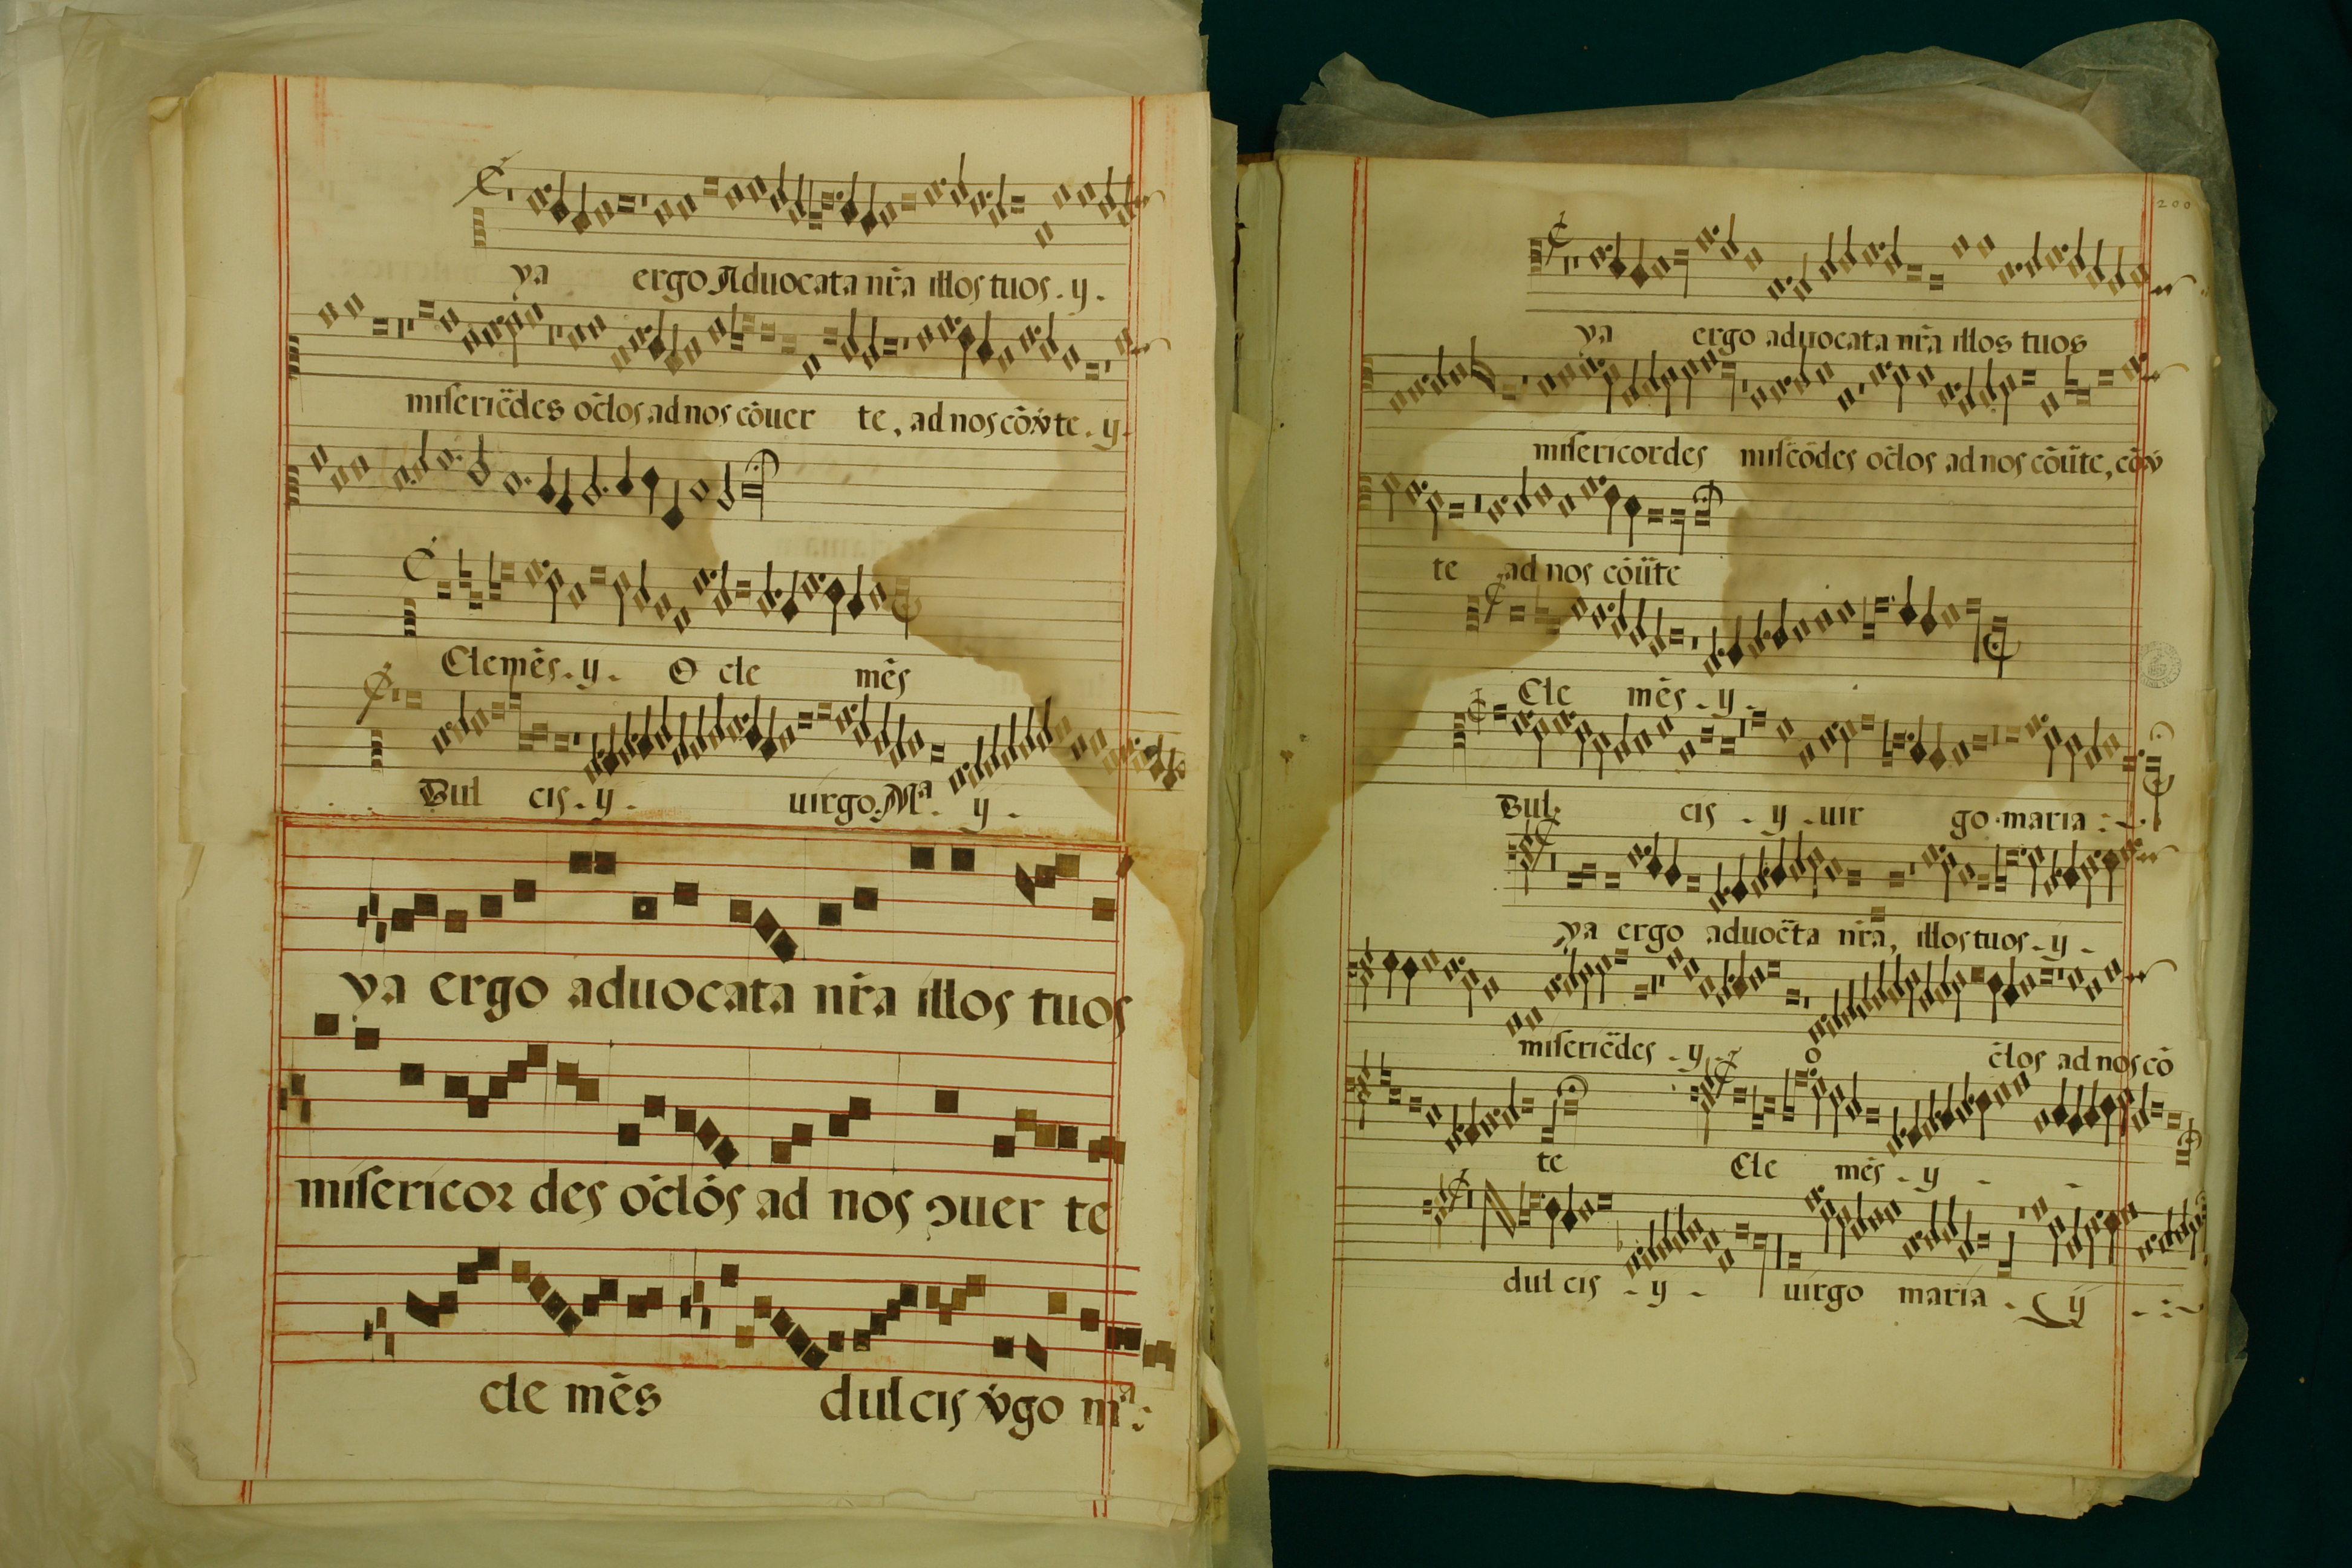 ya ergo Aduocata nr̃a illos tuos . y .
misericẽdes oc̃los ad nos cõuer te , ad nos cõv̾te . y .
Clemẽs . y . O cle mẽs
Dul cis . y . uirgo . Mª . y .
ya ergo aduocata nr̃a illos tuos
misericoꝛ des oc̃los ad nos ɔuer te
cle mẽs dul cis v̾go mª :
200
ya ergo aduocata nr̃a illos tuos
misericordes misc̃õdes oc̃los ad nos cõũte , cõv̾
te ad nos cõũte
Cle mẽs . y .
Dul cis . y . uir go maria :
ya ergo aduoc̃ta nr̃a , illos tuos . y .
misericẽdes . y . o c̃los ad nos cõ
te Cle mẽs . y . .
dul cis . y . uirgo maria . y . :